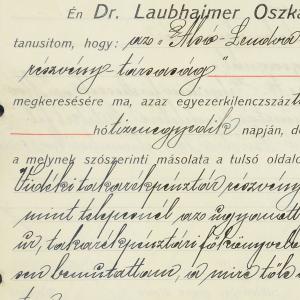 Én Dr. Laubhaimer Oszka
tanusítom, hogy: az "Alsó-Lendva
részvény-társaság"
megkeresésére ma, azaz egyezerkilenczszáz
hó tizenegyedik napján, d
a melynek szószerinti másolata a tulsó oldalo
Vidéki takarékpénztár részvény
mint telepesnél az ugyanott
ur, takarékpénztári főkönyvel
sen bemutattam, a mire tőle